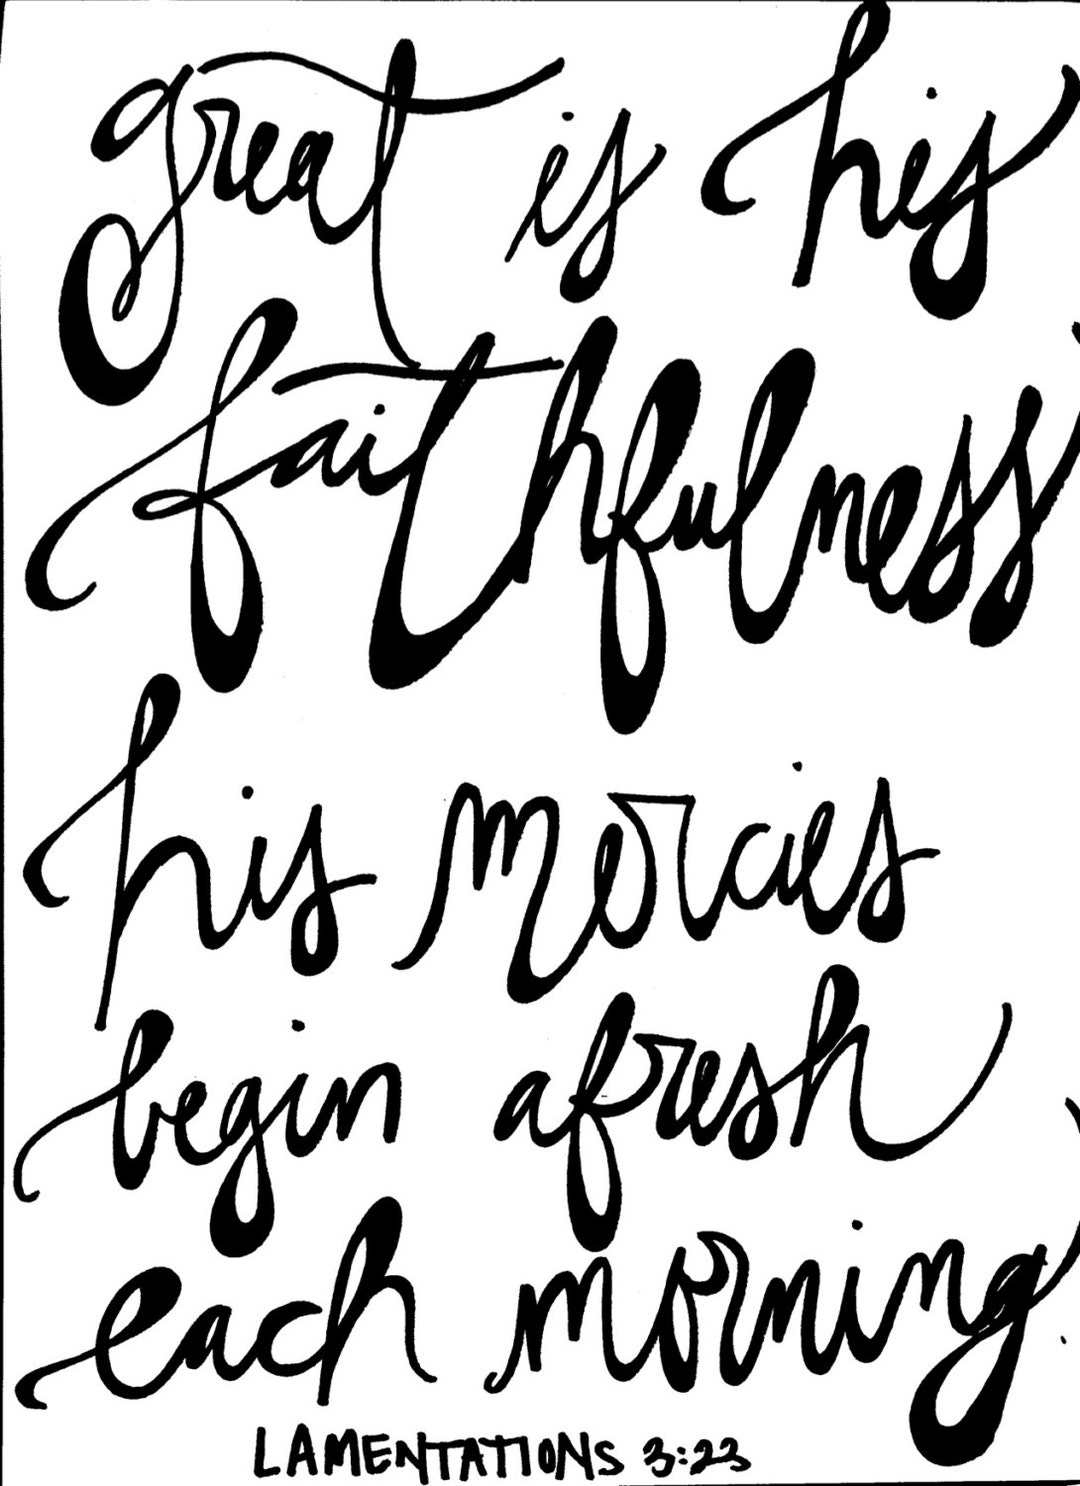 great is his
faithfulness
his mercies
begin afresh
each morning.
LAMENTATIONS 3:23